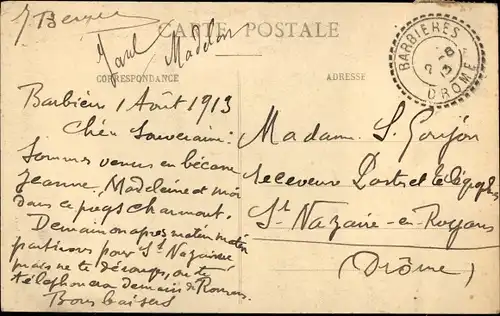 J Berger
CARTE POSTALE
Paul Madelon
CORRESPONDANCE
ADRESSE
BARBIÈRES
2 -8 13
DROME
Barbières 1 Août 1913
Chère Souveraine:
Sommes venus en bécane
Jeanne, Madeleine et moi
dans ce pays charmant.
Demain ou après matin
partirons pour St Nazaire
mais ne te déranges, on te
téléphonera demain de Romans
Bons baisers
Madame S. Goujon
receveuse Postes et Télégraphes
St Nazaire-en-Royans
(Drôme)